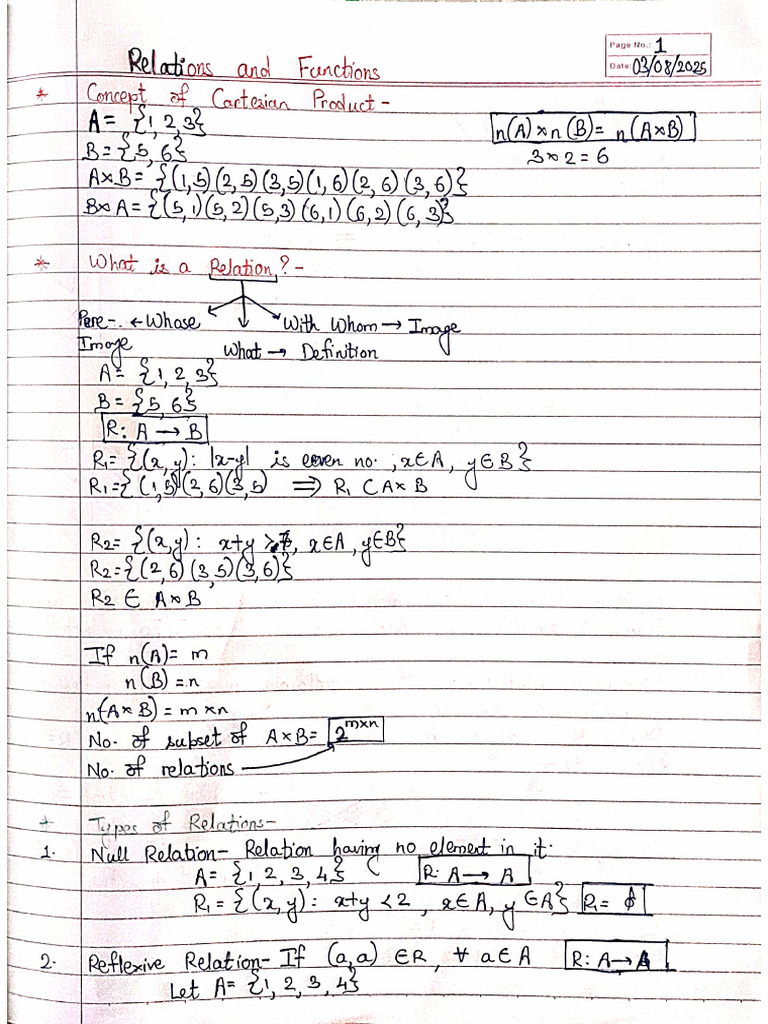 Page No.: 1
Date: 03/08/2025
Relations and Functions
* Concept of Cartesian Product -
A = {1, 2, 3}
n(A) × n(B) = n(A×B)
B = {5, 6}
3 × 2 = 6
A×B = {(1,5)(2,5)(3,5)(1,6)(2,6)(3,6)}
B×A = {(5,1)(5,2)(5,3)(6,1)(6,2)(6,3)}
* What is a Relation? -
Pere-. ← Whose
With Whom → Image
Image
What → Definition
A = {1, 2, 3}
B = {5, 6}
R: A → B
R₁ = {(x, y): |x-y| is even no. ; x∈A, y∈B}
R₁ = {(1,5)(2,6)(3,5) ⇒ R₁ ⊂ A×B
R₂ = {(x,y): x+y > 7, x∈A, y∈B}
R₂ = {(2,6)(3,5)(3,6)}
R₂ ∈ A×B
If n(A) = m
n(B) = n
n(A×B) = m×n
No. of subset of A×B = 2^{m×n}
No. of relations
* Types of Relations -
1. Null Relation - Relation having no element in it.
A = {1, 2, 3, 4} R: A → A
R₁ = {(x, y): x+y < 2, x∈A, y∈A} R₁ = ϕ
2. Reflexive Relation - If (a,a) ∈R, ∀ a∈A R: A → A
Let A = {1, 2, 3, 4}